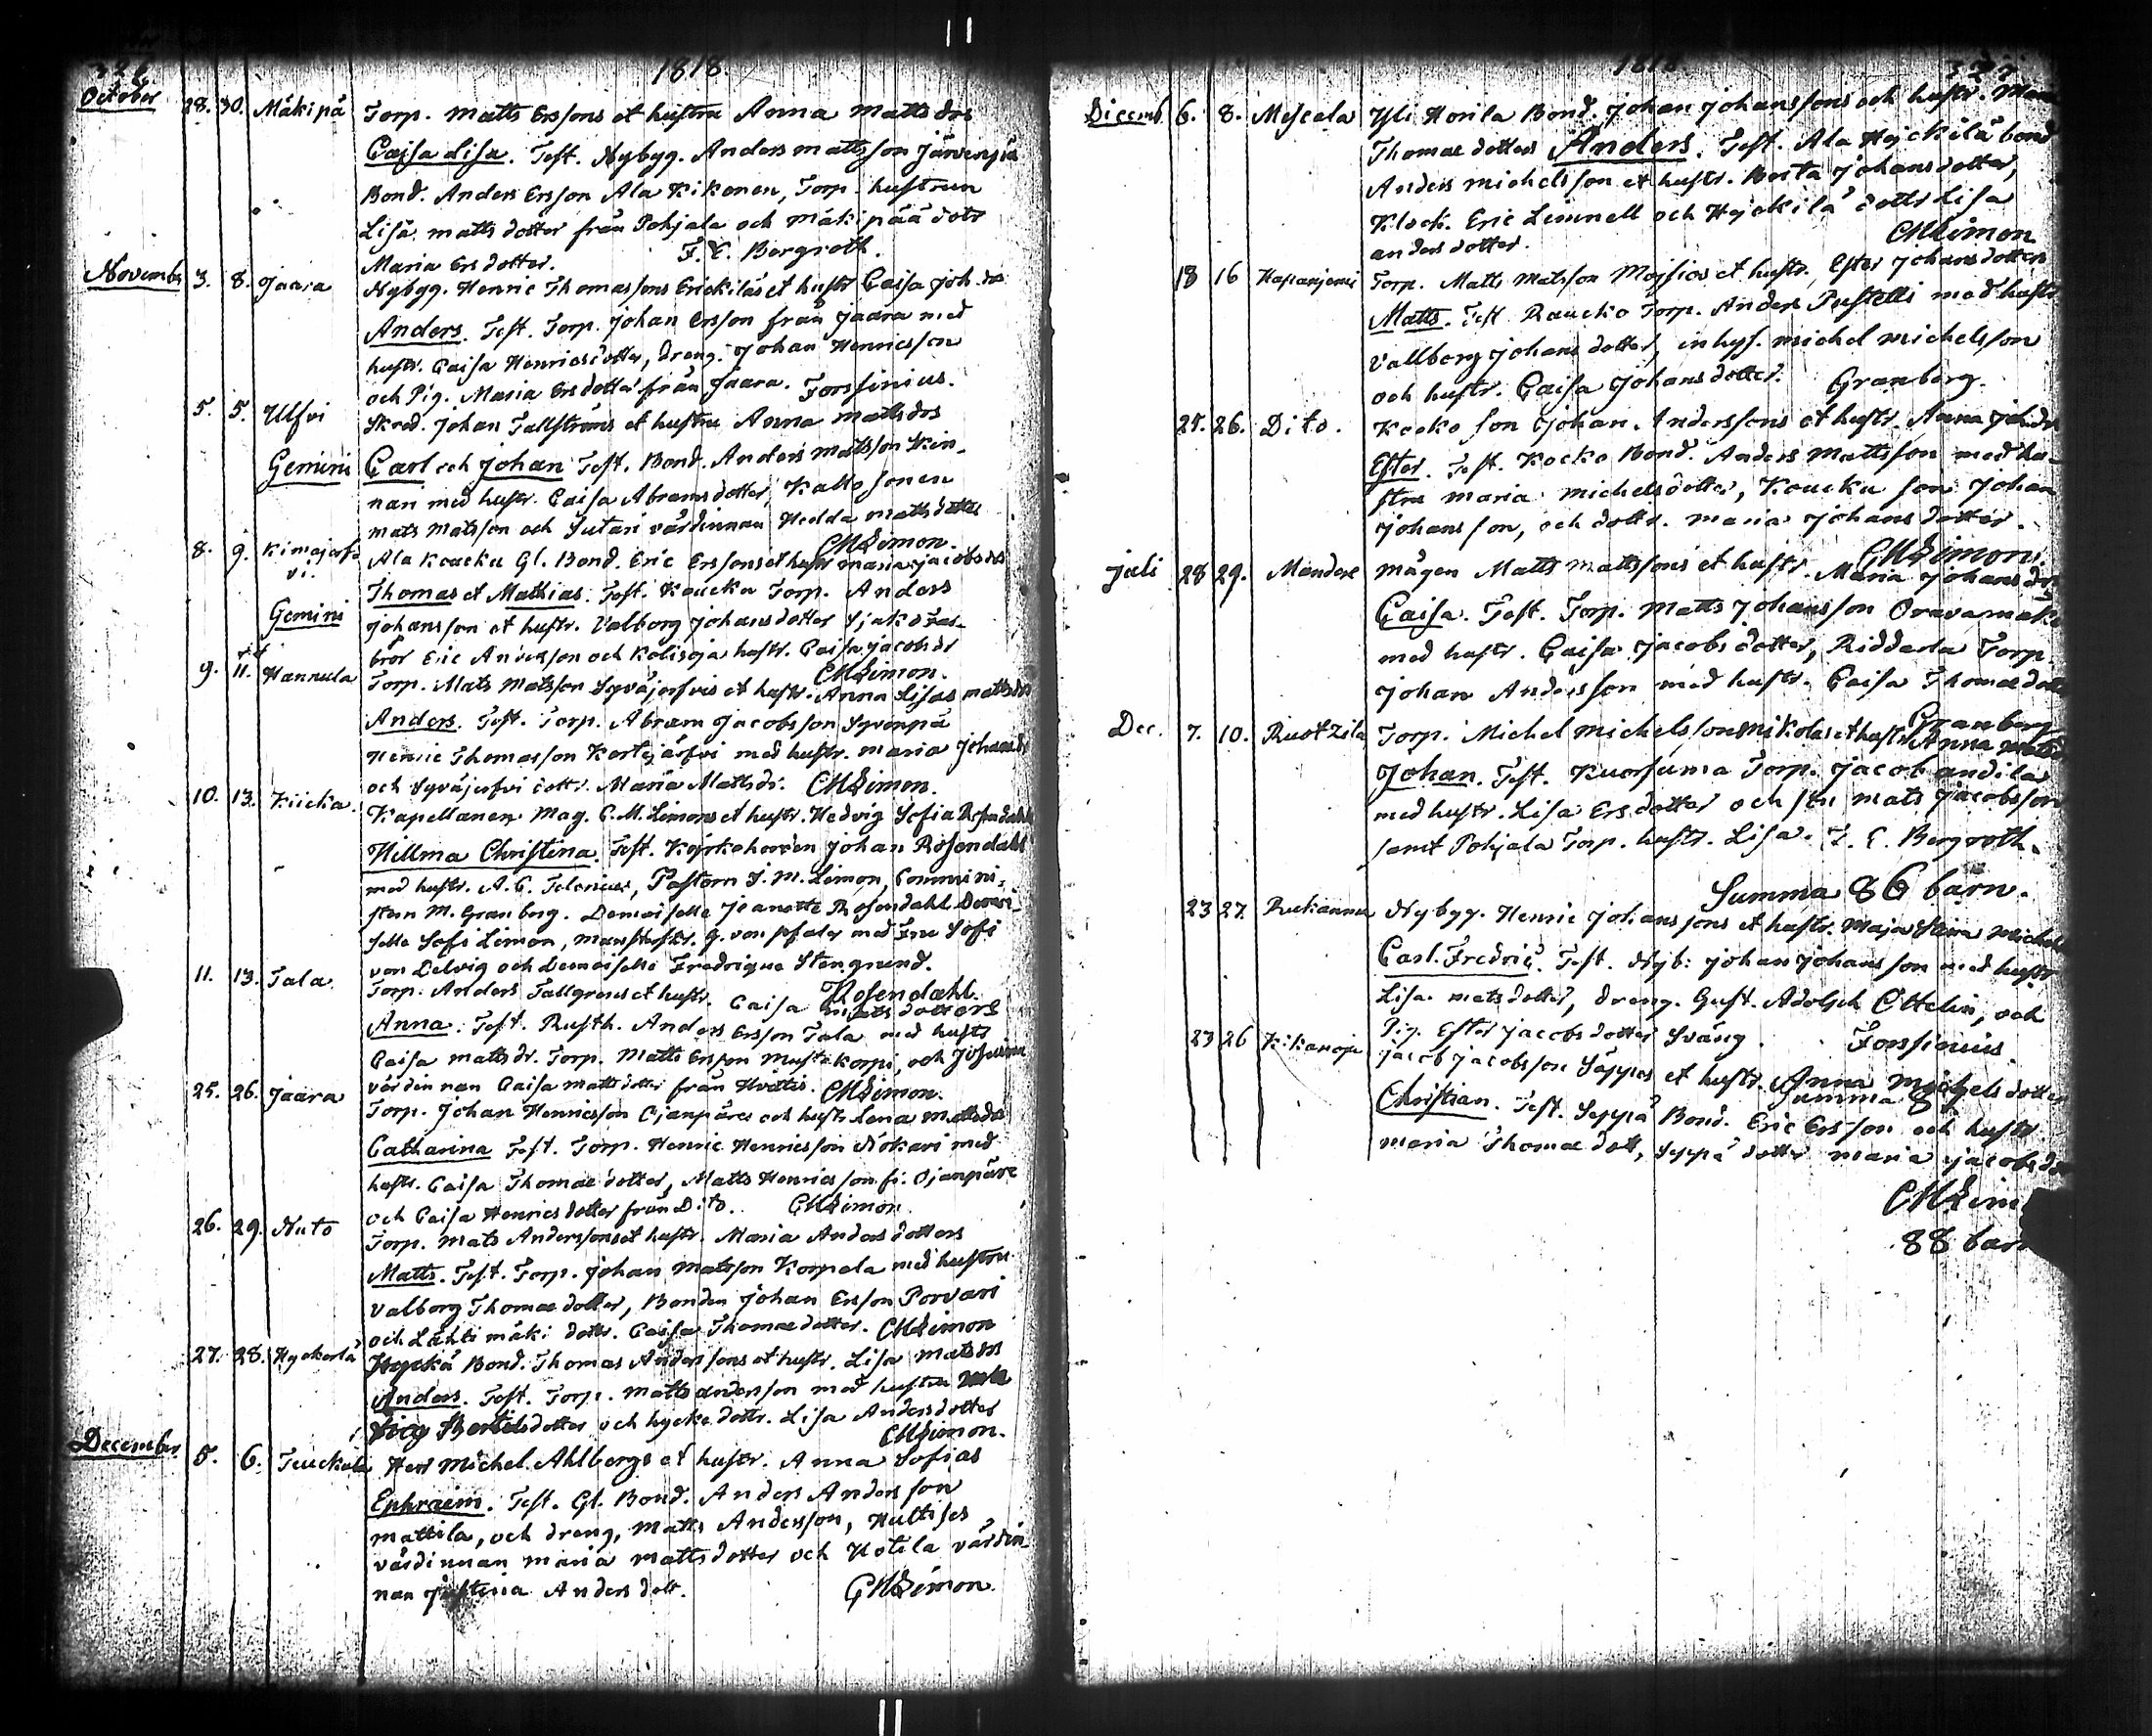 326
1818.
October 28. 30. Mäkipä Torp. Matts Erssons et hustru Anna Mattsdrs
Cajsa Lisa. Test. Nybyg. Anders Mattsson Järvenpä
Bond. Anders Ersson Ala Kikonen, Torp. hustrun
Lisa Matts dotter från Pohjala och Mäkipää dotr
Maria Ers dotter. F. E. Bergroth.
November 3. 8. Jaara Nybyg. Henric Thomassons Erickiläs et hustr Caisa Joh. dr
Anders. Test. Torp. Johan Ersson från Jaara med
hustr. Caisa Henricsdotter, dreng. Johan Henricsson
och Pig. Maria Ersdotter från Jaara. Forssinius.
5. 5. Ulfvi Skred. Johan Tallströms et hustru Anna Mattsdrs
Gemini Carl och Johan Test. Bond. Anders Mattsson Kin-
nan med hustr. Caisa Abramsdotter, Kallo sonen
Mats Matsson och Sutari värdinnan Hedda Mattsdotter
CMLimon.
8. 9. Kimajerf Ala Koucku Gl. Bond. Eric Erssons et hustr Maria Jacobsdrs
vi.
Thomas et Mathias. Test. Koucku Torp. Anders
Gemini Johansson et hustr. Valborg Johansdotter
bror Eric Andersson och Kolisoja hustr. Caisa Jacobsdr
CMLimon.
9. 11. Hannula Torp. Mats Matsson Syväjerfvis et hustr. Anna Lisas Mattsdr
Anders. Test. Torp. Abram Jacobsson Syvenpä
Henric Thomasson Kortejärfvi med hustr. Maria Johansdr
och Syväjerfvi dottr. Maria Mattsdr. CMLimon.
10. 13. Kiicka. Kapellanen Mag. C. M. Limons et hustr. Hedvig Sofia Rosendahls
Hillma Christina. Test. Kyrkoherden Johan Rosendahl
med hustr. A. C. Pastorn J. M. Limon, Commini-
stern M. Granberg. Demoiselle Jeanette Rosendahl Demoi-
selle Sofi Limon, G. von Pfaler med Fru Sofi
von Delvig och Demoiselle Fredrique Stengrund.
Rosendahl.
11. 13. Tala. Torp. Anders Tallgrens et hustr. Caisa Mats dotters
Anna. Test. Rusth. Anders Ersson Tala med hustr
Caisa Matts dr. Torp. Matts Ersson Mustakorpi, och
värdinnan Caisa Mattsdotter från CMLimon.
25. 26. Jaara Torp. Johan Henricsson Ojanpäres och hustr Lena Mattsdr
Catharina Test. Torp. Henric Henricsson Nokari med
hustr. Caisa Thomae dotter, Matts Henricsson fr. Ojanpäre
och Caisa Henrics dotter från Dito. CMLimon.
26. 29. Nuto Torp. Mats Anderssons et hustr. Maria Anders dotters
Matts. Test. Torp. Johan Matsson Korpela med hustru
Valborg Thomae dotter, Bonden Johan Ersson Porvari
och Lähtimäki dottr. Caisa Thomae dotter. CMLimon
27. 28. Hyckerlä Hyckä Bond. Thomas Anderssons et hustr. Lisa Matsdrs
Anders. Test. Torp. Matts Andersson med hustru
Bertelsdotter och hycke dottr. Lisa Andersdotter
CMLimon.
December 5. 6. Teuckula Herr Michel Ahlbergs et hustr. Anna Sofias
Ephraim. Test. Gl. Bond. Anders Andersson
Mattila, och dreng. Matts Andersson,
värdinnan Maria Mattsdotter och Hotila värdin-
nan Justina Anders dott. CMLimon.
1818.
327
Dicemb 6. 8. Mescala Yli Horila Bond. Johan Johanssons och hustr.
Thomae dotters Anders. Test. Ala Hyckilä bond
Anders Michelsson et hustr. Berta Johansdotter,
Klock. Eric Lemnell och Hyckilä dottr Lisa
andersdotter. CMLimon
18 16 Hapanjerni Torp. Matts Matsson Mojsios et hustr. Ester Johansdotters
Matts. Test Raucko Torp. Anders Pustelli med hustr
Vallborg Johans dotter, inhys. Michel Michelsson
och hustr. Caisa Johansdotter. Granberg.
25. 26. Dito. Kocko son Johan Anderssons et hustr. Anna Joh.dr
Ester. Test. Kocko Bond. Anders Mattsson med hu-
stru Maria Michelsdotter, Koucku son Johan
Johansson, och dottr. Maria Johans dotter.
CMLimon.
juli 28 29. Mendere Mågen Matts Mattssons et hustr. Maria Johansdr
Caisa. Test. Torp. Matts Johansson Oravamäki
med hustr. Caisa Jacobs dotter, Riddarla Torp.
Johan Andersson med hustr. Caisa Thomae dott
Granberg
Dec. 7. 10. Ruotzila Torp. Michel Michelssons Mikolas et hustr Anna Matsd
Johan. Test. Kuorsuma Torp. Jacob andila
med hustr. Lisa Ersdotter och son Mats Jacobsson
samt Pohjala Torp. hustr. Lisa. F. E. Bergroth.
Summa 86 barn.
23 27. Ruckanna Nybyg. Henric Johanssons et hustr. Maja Stina Michels
Carl Fredric. Test. Nyb: Johan Johansson med hustr
Lisa Matsdotter, dreng. Gust. Adolph Ottelin, och
Pig. Ester Jacobs dotter Sväng. Forssinius.
23 26 Kikanoja Jacob Jacobsson Säppes et hustr. Anna Michels dotter
Summa 8
Christian. Test. Seppä Bond. Eric Ersson och hustr.
Maria Thomae dott, Seppä dotter Maria Jacobsd
CMLim
88 barn